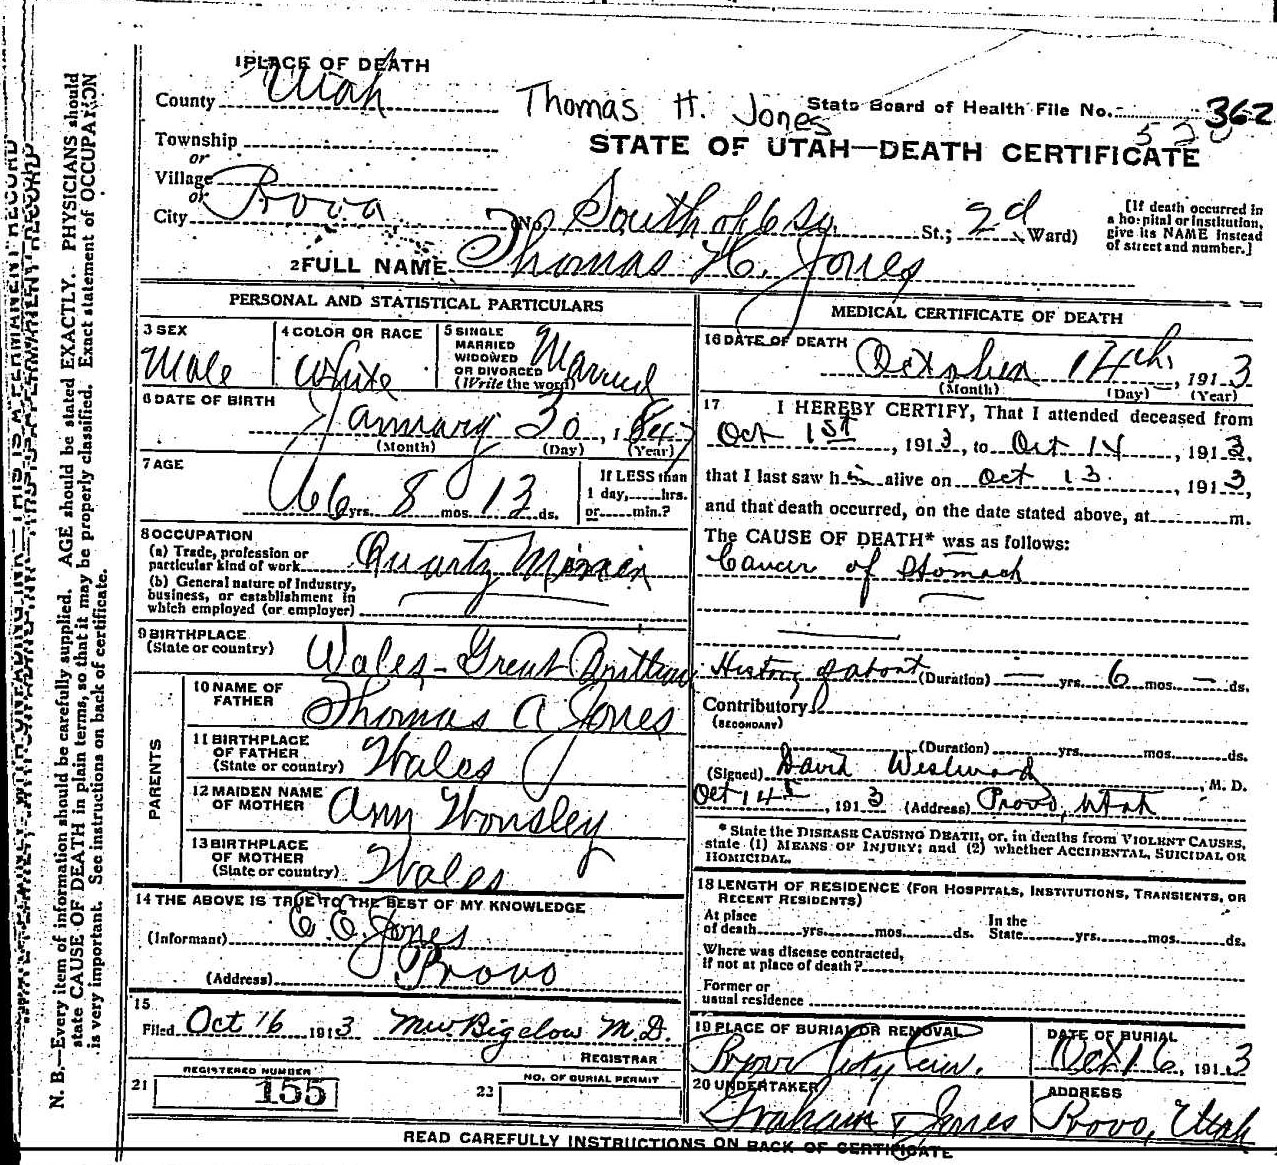 1 PLACE OF DEATH
County Utah
Thomas H. Jones
State Board of Health File No. 362
Township
or
Village
or
City Provo
STATE OF UTAH—DEATH CERTIFICATE
No. South of 6 So. St.; 2d Ward)
[If death occurred in a hospital or institution, give its NAME instead of street and number.]
2 FULL NAME Thomas H. Jones
PERSONAL AND STATISTICAL PARTICULARS
3 SEX
Male
4 COLOR OR RACE
White
5 SINGLE
MARRIED
WIDOWED
OR DIVORCED
(Write the word)
Married
6 DATE OF BIRTH
January 30, 1847
(Month) (Day) (Year)
7 AGE
66 yrs. 8 mos. 13 ds.
If LESS than
1 day, hrs.
or min.?
8 OCCUPATION
(a) Trade, profession or
particular kind of work Quartz Miner
(b) General nature of Industry,
business, or establishment in
which employed (or employer)
9 BIRTHPLACE
(State or country) Wales - Great Brittian
PARENTS
10 NAME OF
FATHER Thomas A Jones
11 BIRTHPLACE
OF FATHER
(State or country) Wales
12 MAIDEN NAME
OF MOTHER Ann Wonsley
13 BIRTHPLACE
OF MOTHER
(State or country) Wales
14 THE ABOVE IS TRUE TO THE BEST OF MY KNOWLEDGE
(Informant) E. E. Jones
(Address) Provo
15
Filed Oct 16 1913 MW Bigelow M.D.
REGISTRAR
21 REGISTERED NUMBER
155
22 NO. OF BURIAL PERMIT
MEDICAL CERTIFICATE OF DEATH
16 DATE OF DEATH
October 14th, 1913
(Month) (Day) (Year)
17 I HEREBY CERTIFY, That I attended deceased from
Oct 1st, 1913, to Oct 14, 1913,
that I last saw h alive on Oct 13, 1913,
and that death occurred, on the date stated above, at m.
The CAUSE OF DEATH* was as follows:
Cancer of Stomach
History of about (Duration) — yrs. 6 mos. — ds.
Contributory
(SECONDARY)
(Duration) yrs. mos. ds.
(Signed) David Westwood, M. D.
Oct 14, 1913 (Address) Provo, Utah
* State the DISEASE CAUSING DEATH, or, in deaths from VIOLENT CAUSES,
state (1) MEANS OF INJURY; and (2) whether ACCIDENTAL, SUICIDAL OR
HOMICIDAL.
18 LENGTH OF RESIDENCE (FOR HOSPITALS, INSTITUTIONS, TRANSIENTS, OR
RECENT RESIDENTS)
At place
of death yrs. mos. ds.
In the
State yrs. mos. ds.
Where was disease contracted,
if not at place of death?
Former or
usual residence
19 PLACE OF BURIAL OR REMOVAL
Provo City Cem.
DATE OF BURIAL
Oct 16, 1913
20 UNDERTAKER
Graham & Jones
ADDRESS
Provo, Utah
READ CAREFULLY INSTRUCTIONS ON BACK OF CERTIFICATE
N. B.—Every item of information should be carefully supplied. AGE should be stated EXACTLY. PHYSICIANS should
state CAUSE OF DEATH in plain terms, so that it may be properly classified. Exact statement of OCCUPATION
is very important. See instructions on back of certificate.